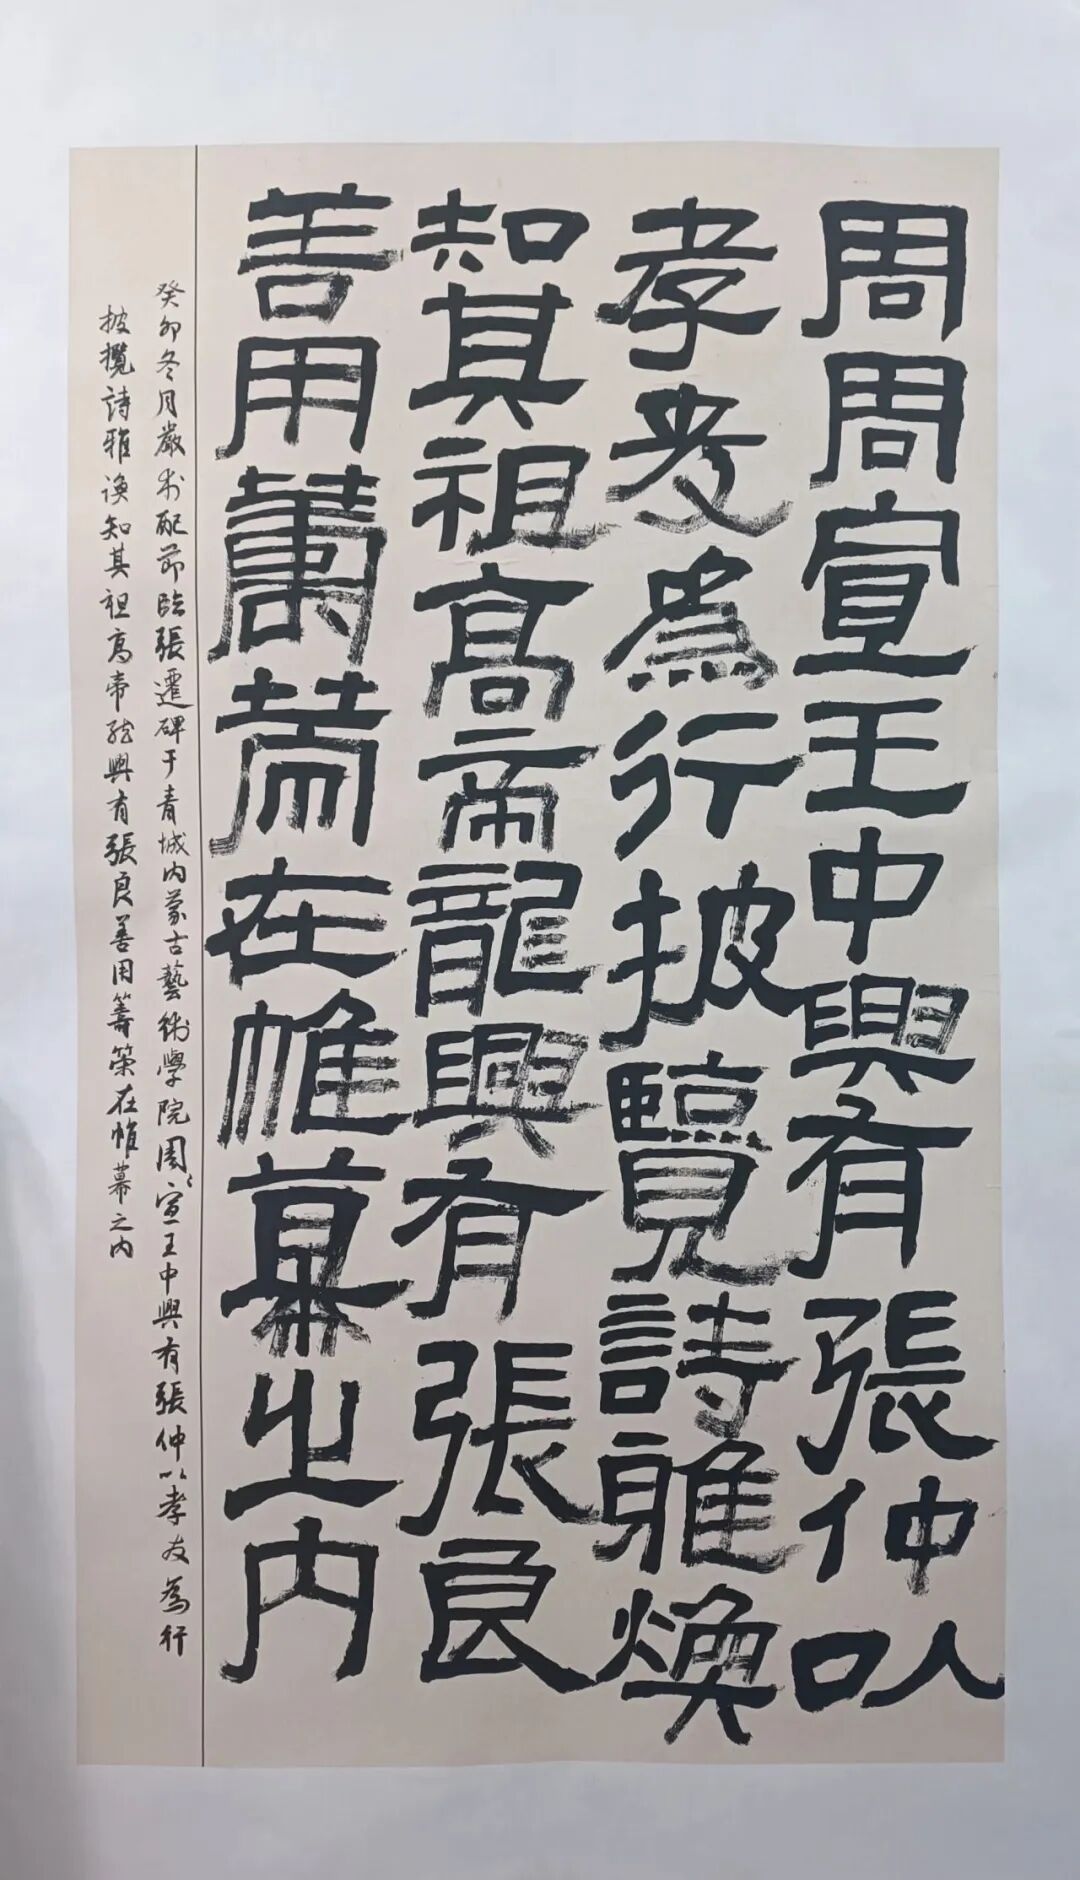 周周宣王中興有張仲以
孝友為行披覽詩雅煥
知其祖高帝龍興有張良
善用籌策在帷幕之内
癸卯冬月嚴配節臨張遷碑于青城内蒙古藝術學院周〻宣王中興有張仲以孝友為行
披攬詩雅渙知其祖高帝龍興有張良善用籌策在帷幕之内